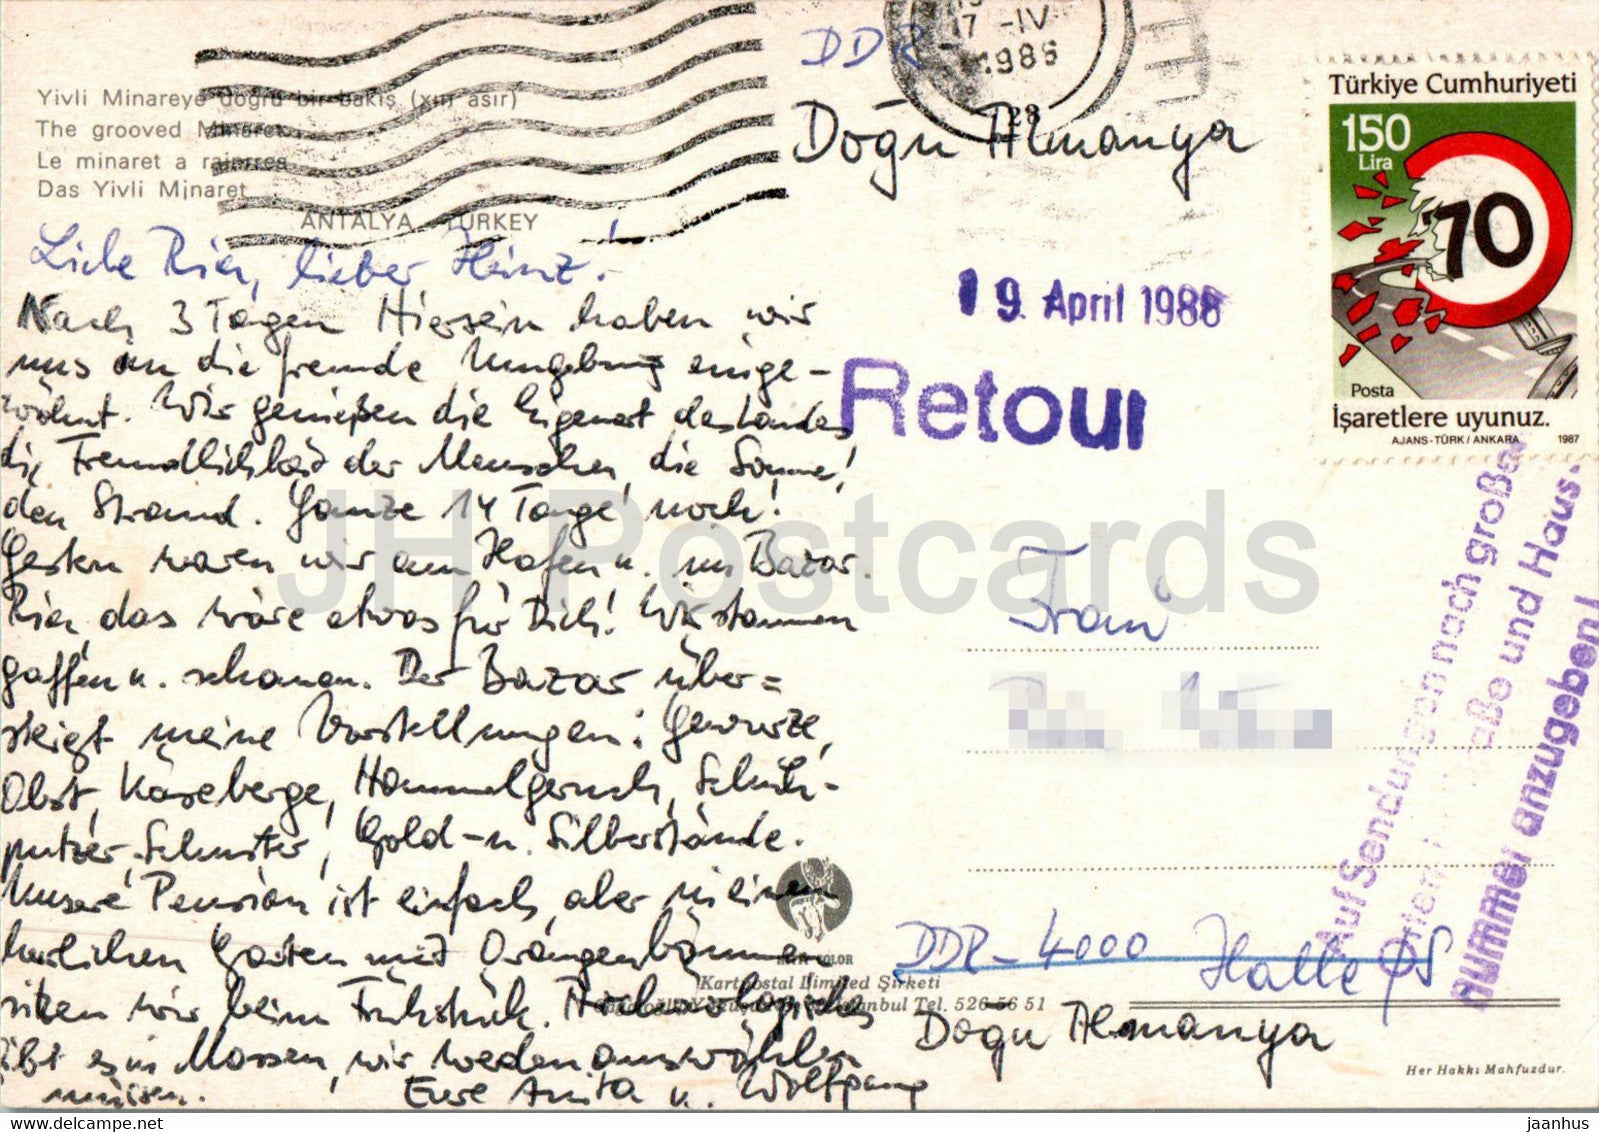 Yivli Minareye doğru bir bakış (XIII asır)
The grooved Minaret
Le minaret a rainrres
Das Yivli Minaret
ANTALYA TURKEY
DDR
17 -IV
1988
28
Doğu Almanya
Türkiye Cumhuriyeti
150
Lira
70
Posta
İşaretlere uyunuz.
AJANS-TÜRK / ANKARA 1987
19. April 1988
Retour
Liebe Ria, lieber Heinz!
Nach 3 Tagen Hiersein haben wir
uns an die fremde Umgebung einge-
wöhnt. Wir genießen die Eigenart des Landes
die Freundlichkeit der Menschen, die Sonne,
den Strand. Ganze 14 Tage noch!
Gestern waren wir am Hafen u. im Bazar.
Ria, das wäre etwas für Dich! Wir staunen
gaffen u. schauen. Der Bazar über=
steigt meine Vorstellungen: Gewürze,
Obst, Käseberge, Hammelgeruch, Schuh-
putzer, Schuster, Gold- u. Silberstände.
Unsere Pension ist einfach, aber in einem
herrlichen Garten mit Orangenbäumen
sitzen wir beim Frühstück.
gibt es in Massen, wir werden auswählen
müssen. Eure Anita u. Wolfgang
Frau
DDR-4000 Halle
Dogu Almanya
Auf Sendungen nach großen
Orten Straße und Haus-
nummer anzugeben!
COLOR
Kartpostal Limited Şirketi
İstanbul Tel. 526 56 51
Her Hakkı Mahfuzdur.
JH Postcards
jaanhus ©